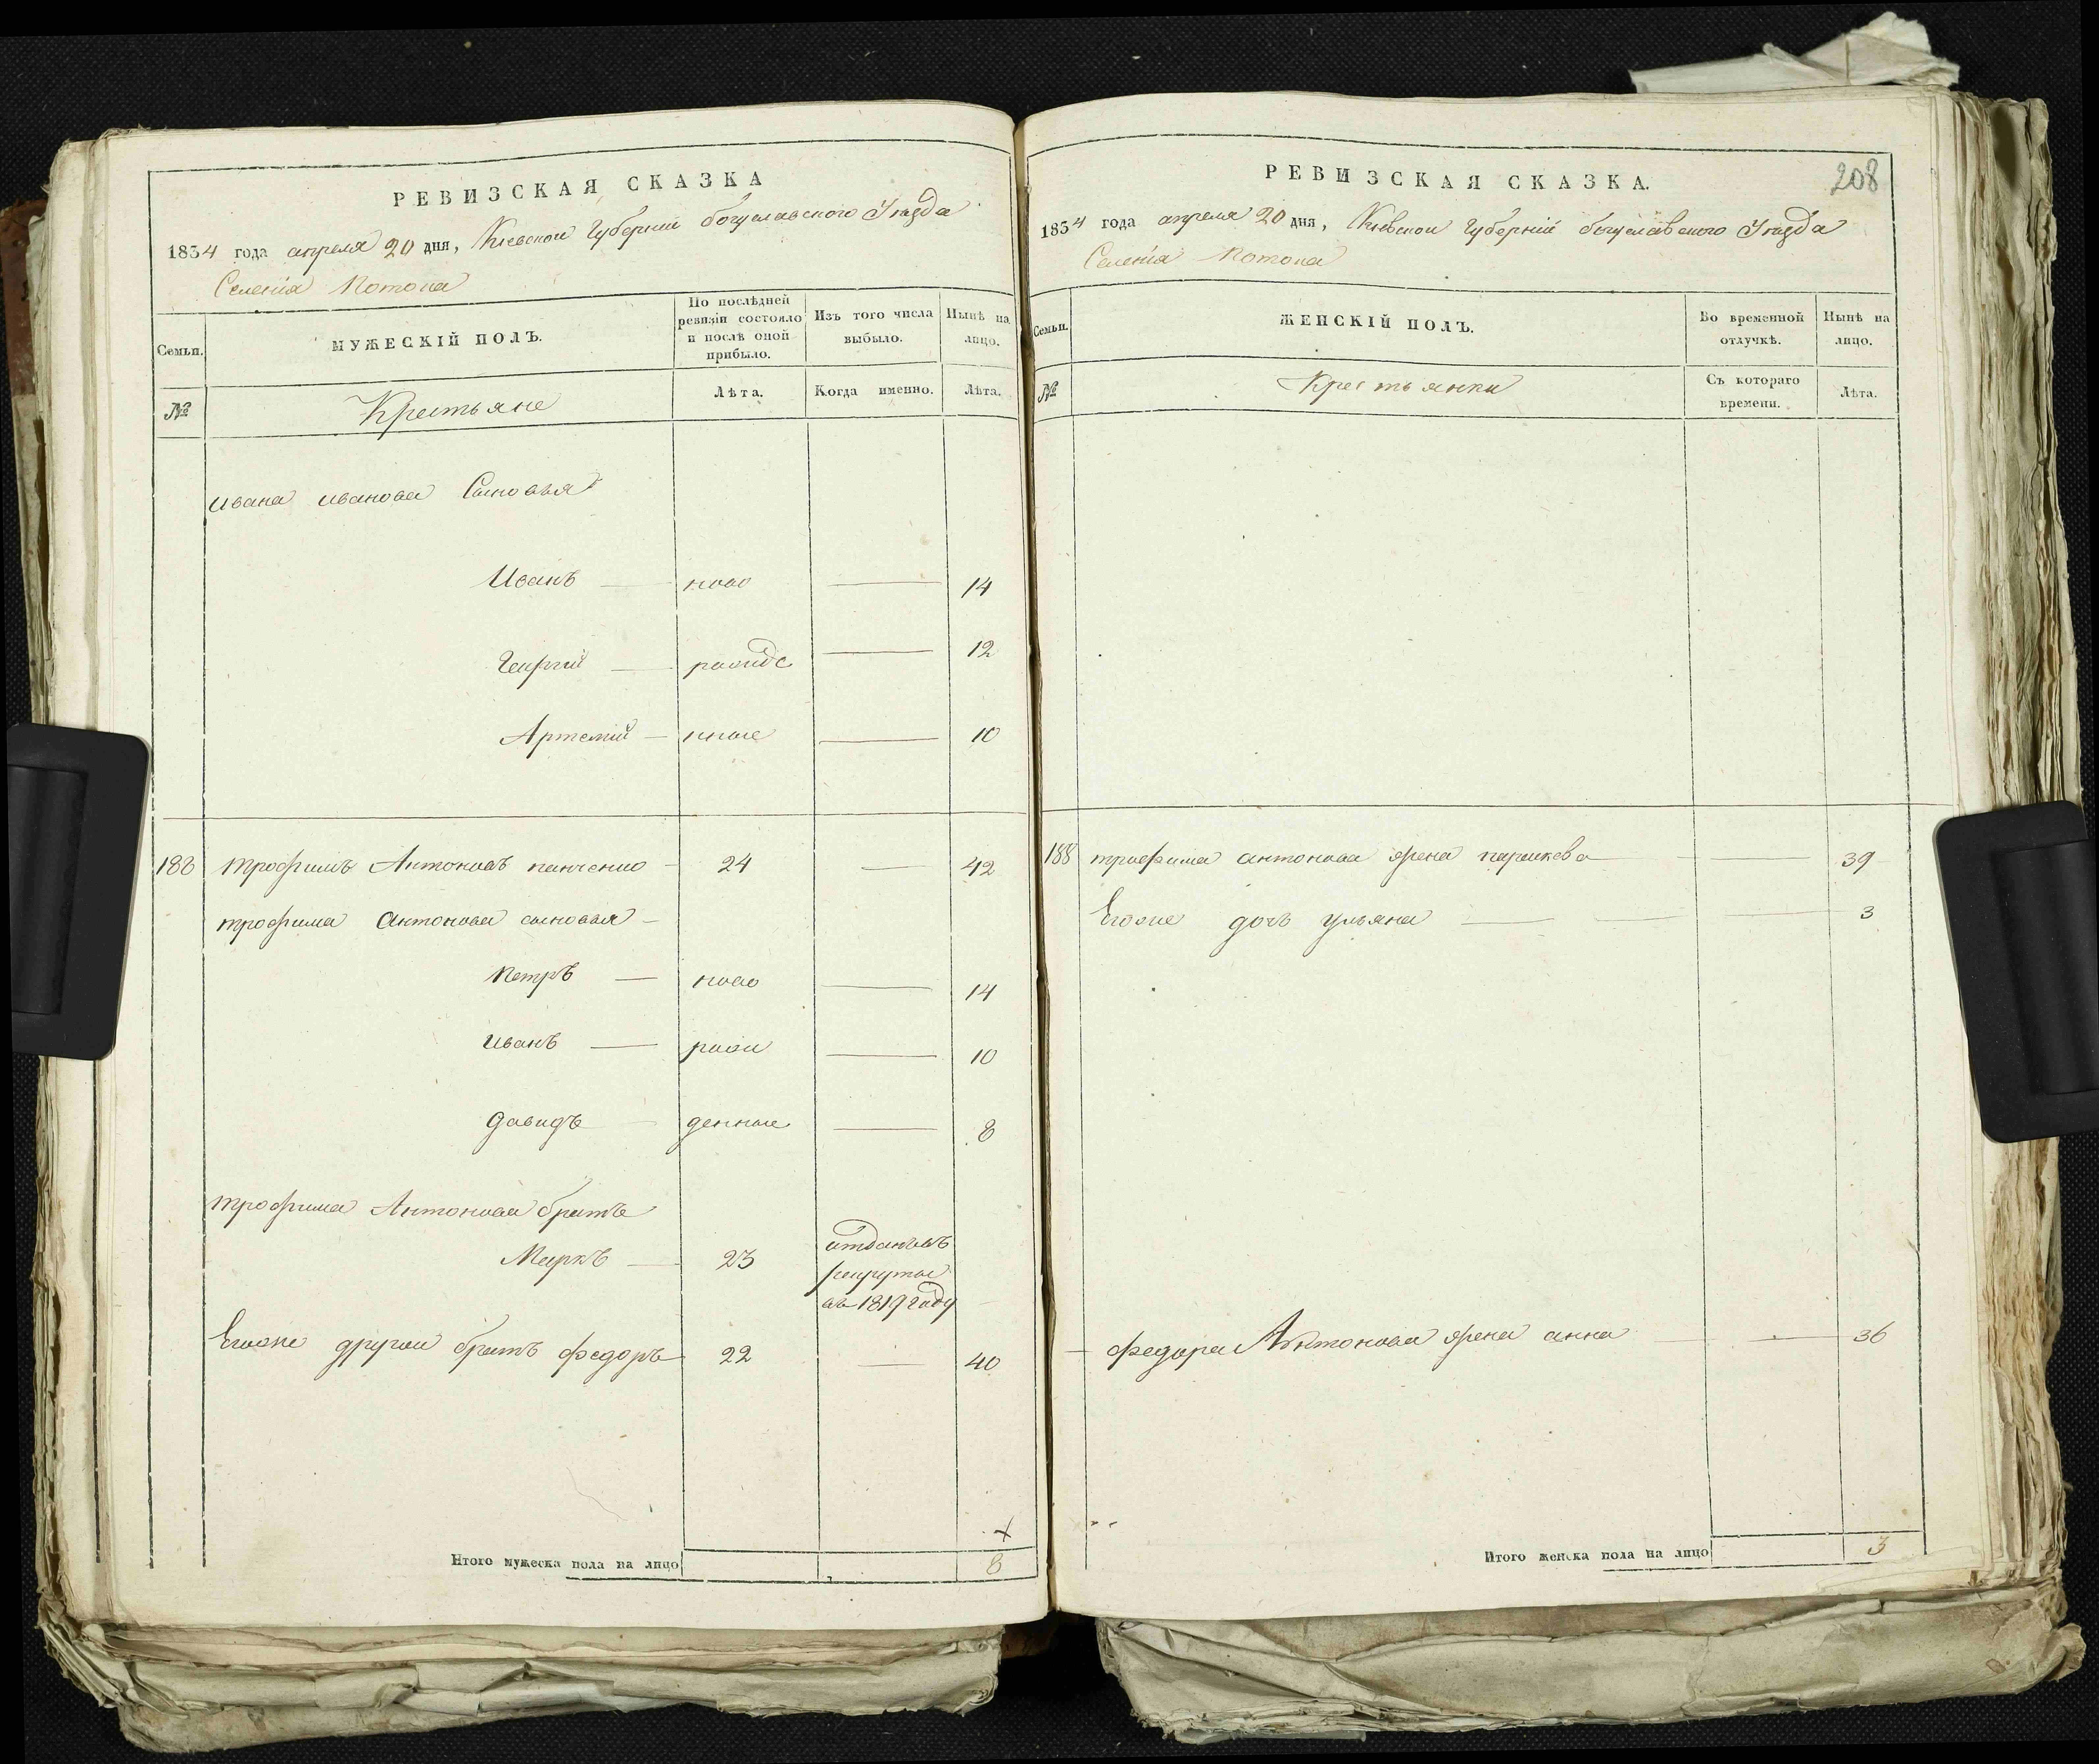 РЕВИЗСКАЯ СКАЗКА
1834 года апреля 20 дня, Киевской Губернии богуславского Уезда
Селенія Потока
Семьи.
МУЖЕСКІЙ ПОЛЪ.
По послѣдней ревизіи состояло и послѣ оной прибыло.
Изъ того числа выбыло.
Нынѣ на лицо.
№
Крестьяне
Лѣта.
Когда именно.
Лѣта.
ивана иванова Сыновья
Иванъ — ново — 14
Георгий — рожде — 12
Артемий — нные — 10
188 трофимъ Антоновъ панченко — 24 — 42
трофима Антонова сыновья —
петръ — ново — 14
иванъ — рож — 10
давидъ — денные — 8
трофима Антонова братъ
Маркъ — 23 отданъ въ
рекруты
въ 1819 году
Егоже другой братъ федоръ 22 — 40
Итого мужеска пола на лицо 8
РЕВИЗСКАЯ СКАЗКА.
208
1834 года апреля 20 дня, Киевской Губерніи богуславского Уезда
Селенія Потока
Семьи.
ЖЕНСКІЙ ПОЛЪ.
Во временной отлучкѣ.
Нынѣ на лицо.
№
Крестьянки
Съ котораго времени.
Лѣта.
188 трофима антонова жена — — 39
Егоже дочъ ульяна — — — 3
— федора Антонова жена анна — — 36
Итого женска пола на лицо 3